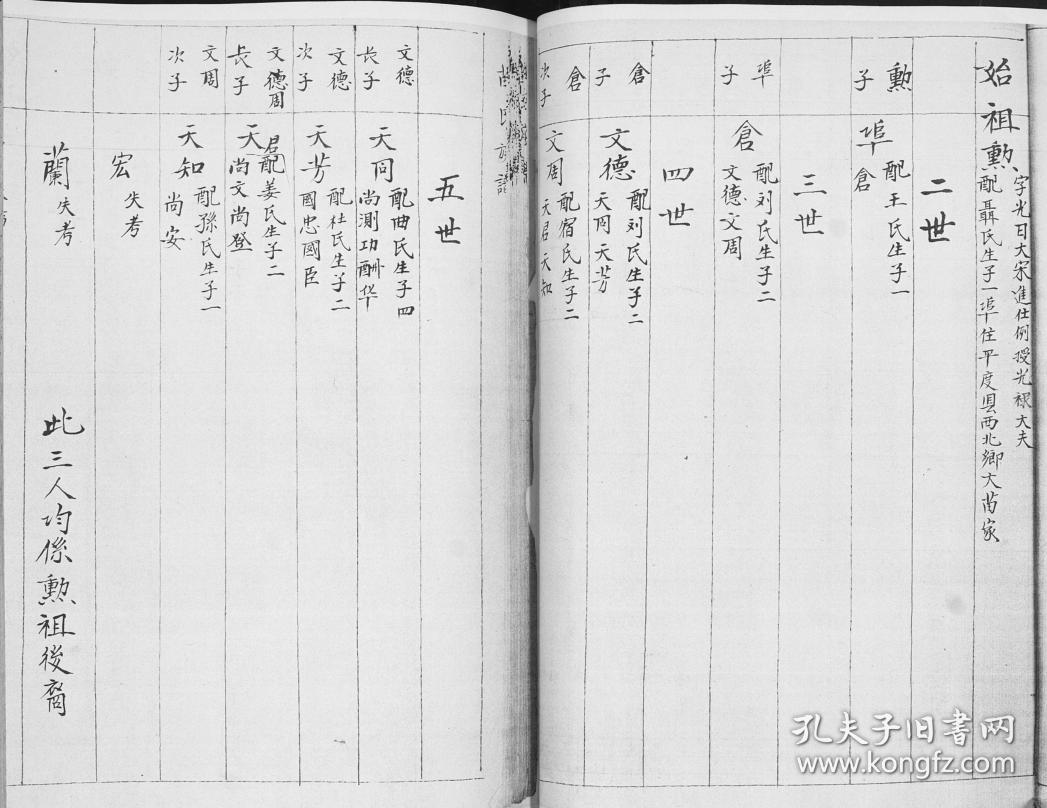 始祖勲
字光日大宋進仕例授光禄大夫
配聶氏生子一埠住平度县西北鄉大苗家
二世
勲
子
埠
配王氏生子一
倉
三世
埠
子
倉
配刘氏生子二
文德文周
四世
倉
子
文德
配刘氏生子二
天同天芳
倉
次子
文周
配宿氏生子二
天君天知
五世
文德
长子
天同
配曲氏生子四
尚测功酬华
文德
次子
天芳
配杜氏生子二
國忠國臣
文周
长子
天君
配姜氏生子二
尚文尚登
文周
次子
天知
配孫氏生子一
尚安
宏
失考
蘭
失考
此三人均係勲祖後裔
孔夫子旧書网
www.kongfz.com